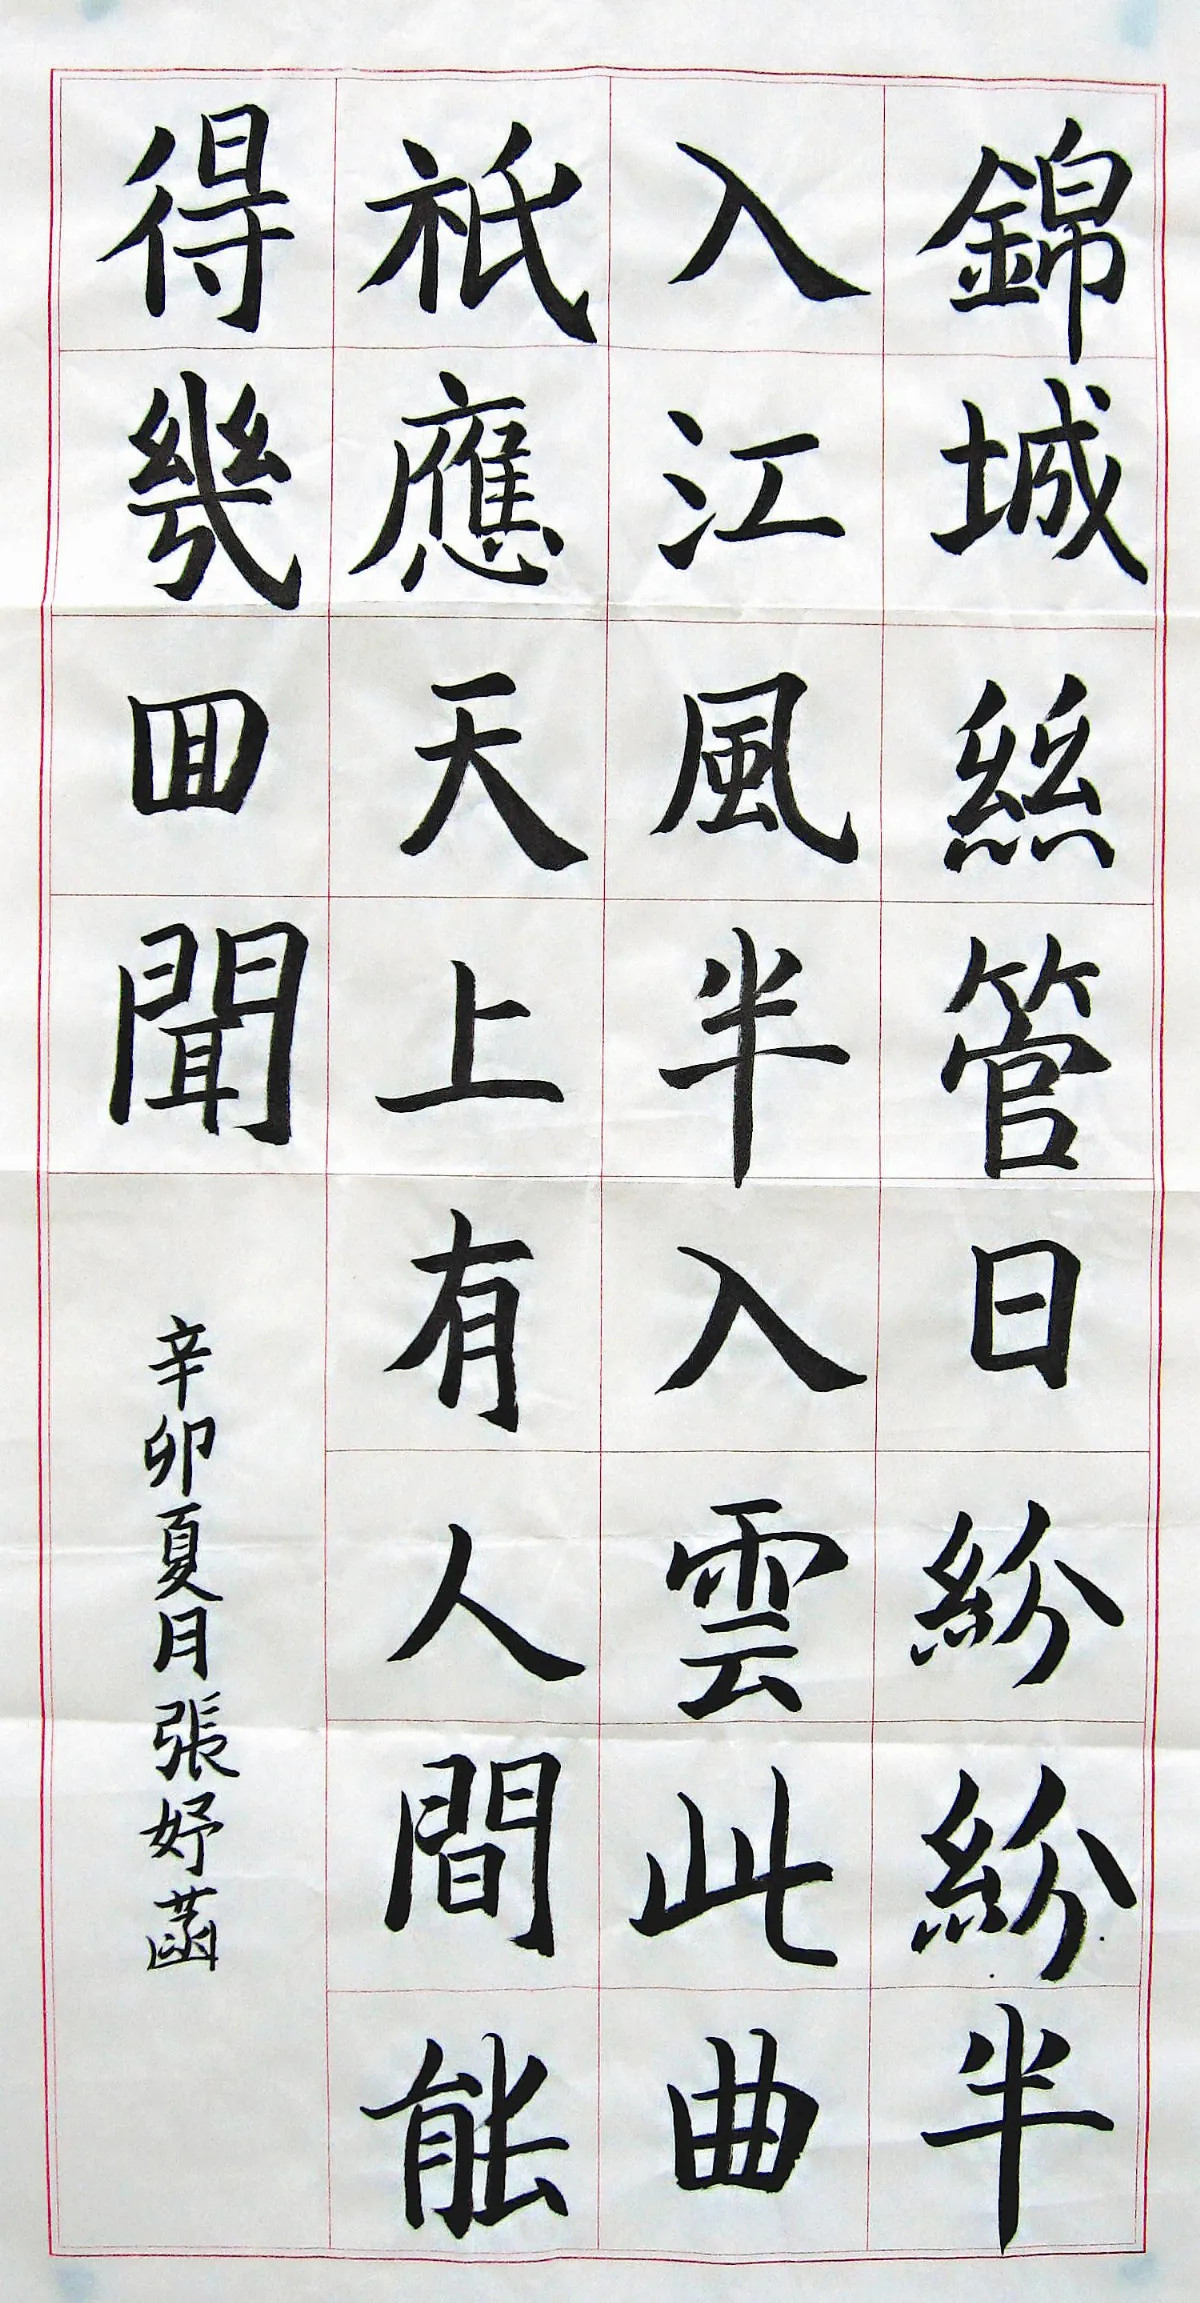 錦城絲管日紛紛半
入江風半入雲此曲
祇應天上有人間能
得幾回聞
辛卯夏月張妤菡